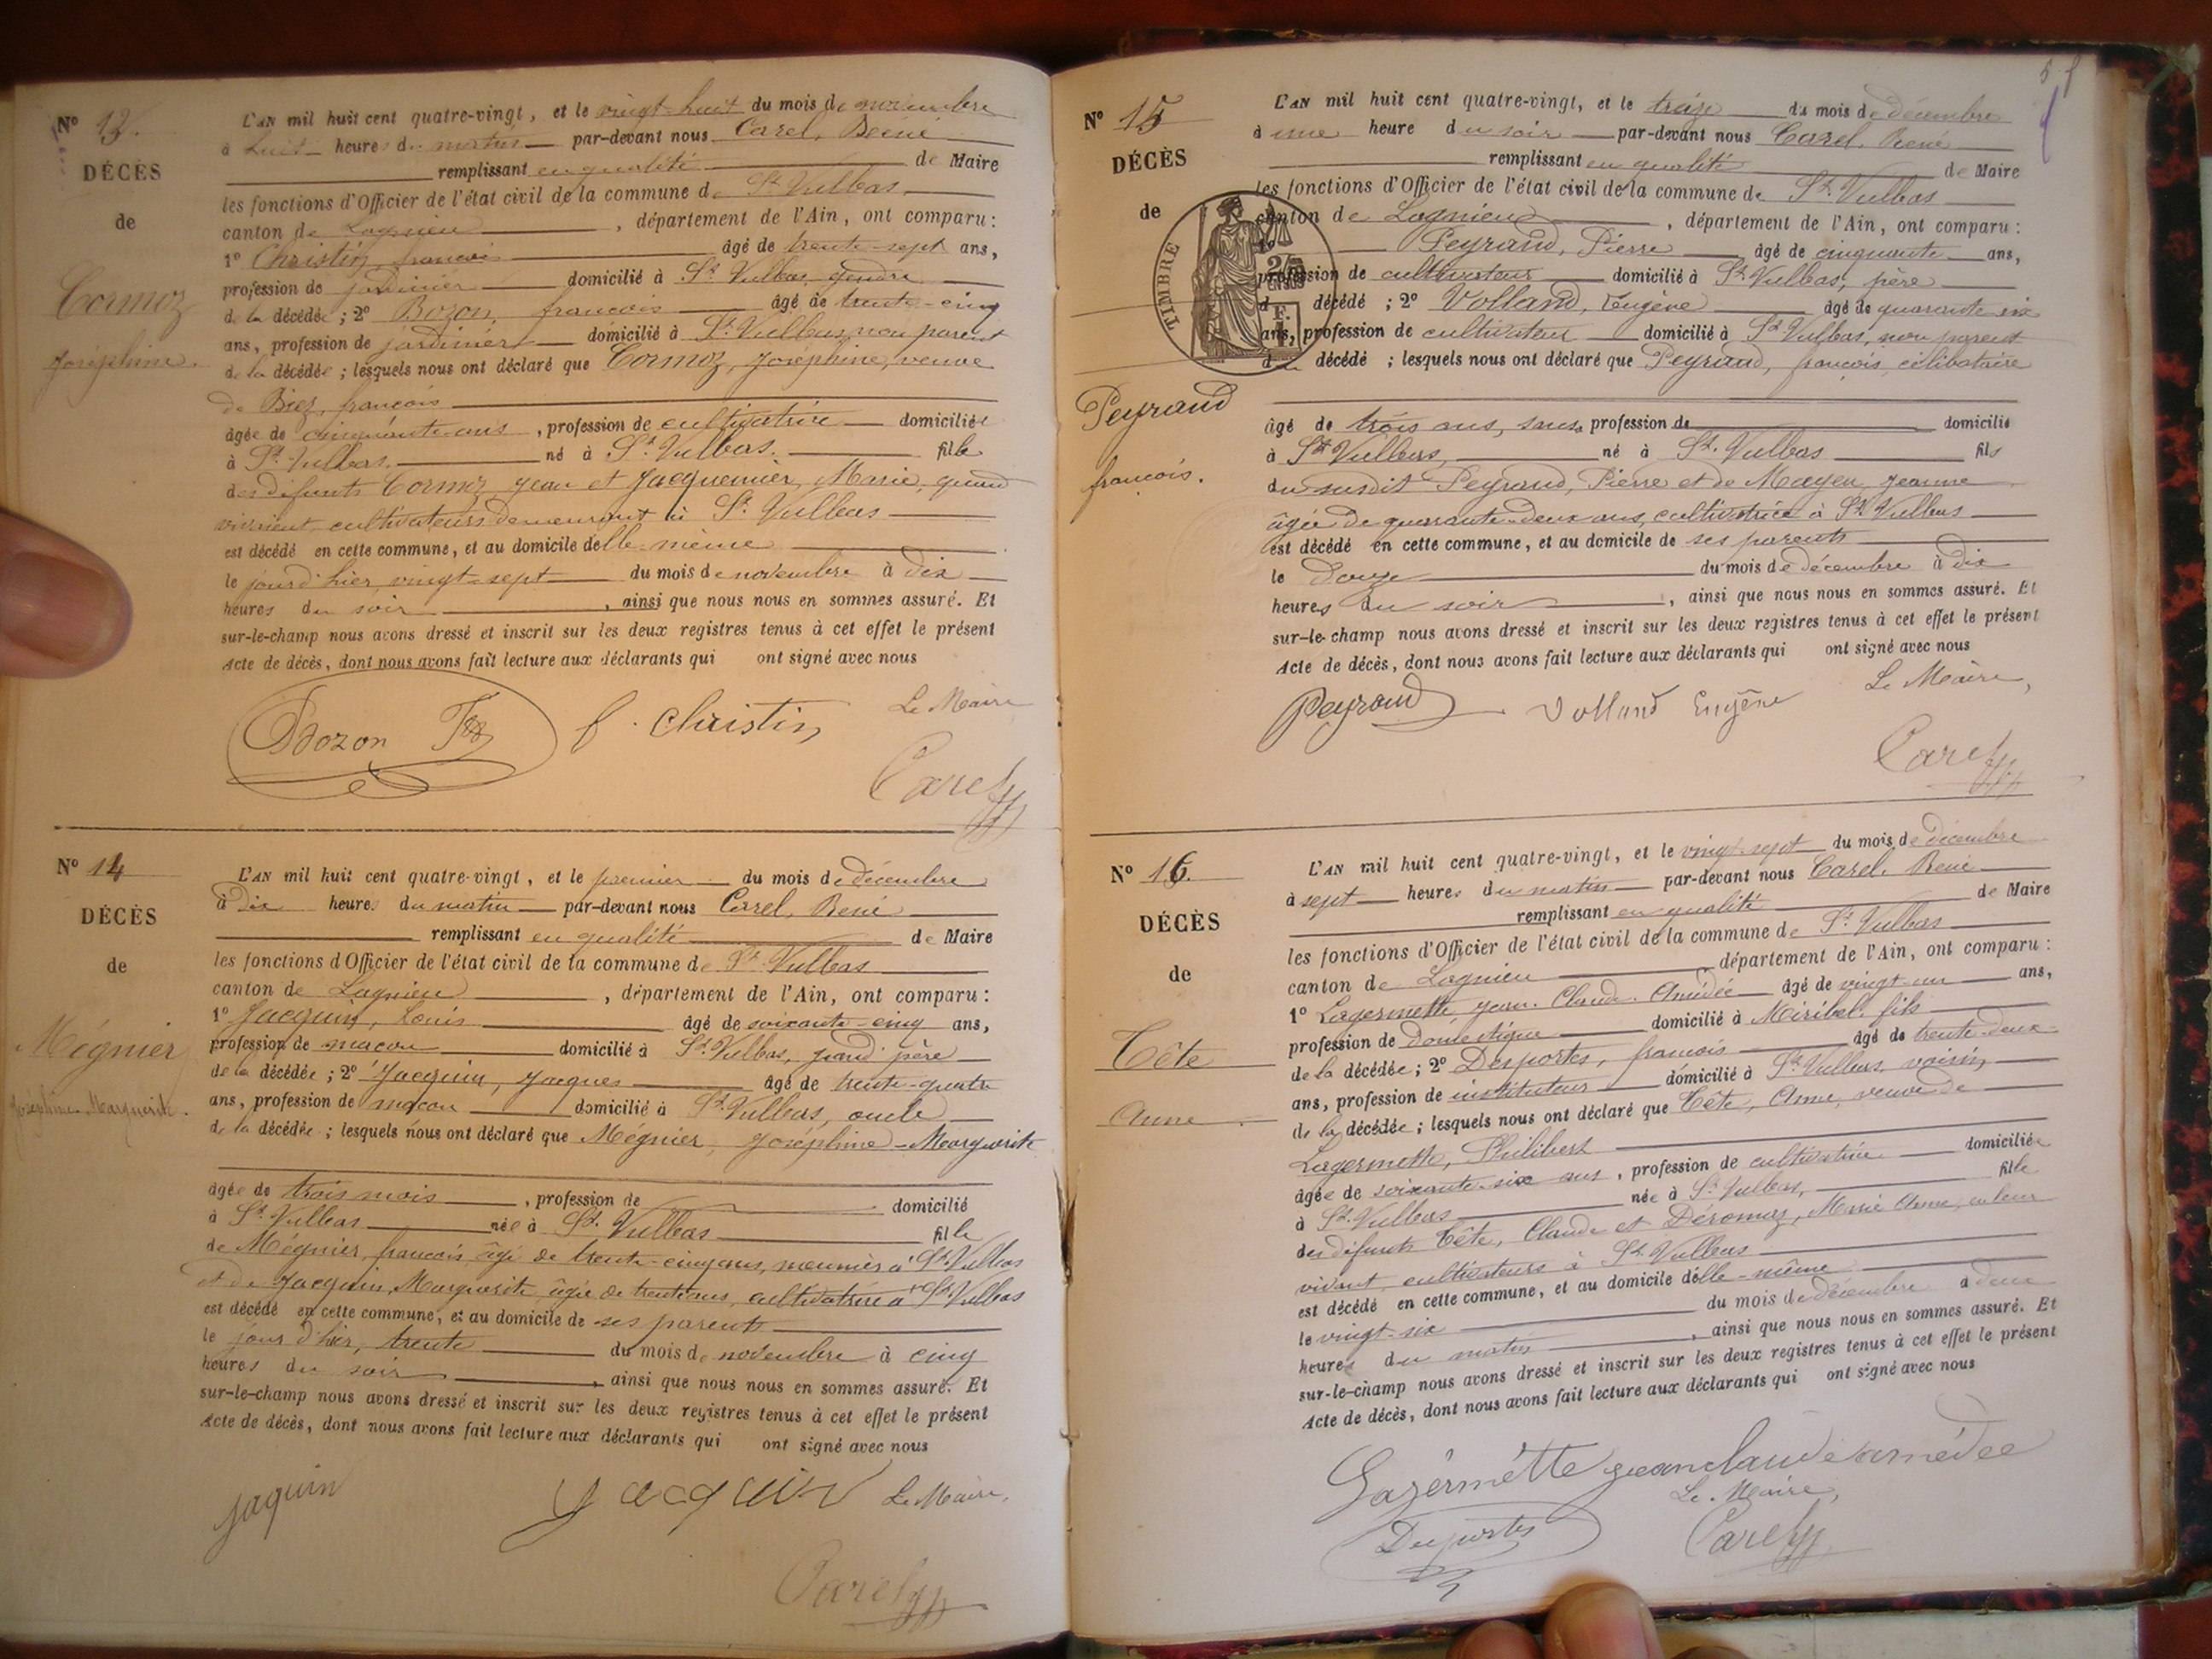 N° 13.
DÉCÈS
de
Cormoz
Joséphine.
L'AN mil huit cent quatre-vingt, et le vingt-huit du mois de novembre
à huit heures du matin par-devant nous Carel, René
remplissant en qualité de Maire
les fonctions d'Officier de l'état civil de la commune de St Vulbas
canton de Lagnieu, département de l'Ain, ont comparu:
1° Christin, francois âgé de trente-sept ans,
profession de jardinier domicilié à St Vulbas, gendre
de la décédée; 2° Bozon, francois âgé de trente-cinq
ans, profession de jardinier domicilié à St Vulbas, non parent
de la décédée; lesquels nous ont déclaré que Cormoz, Joséphine, veuve
de francois
âgée de cinquante ans, profession de cultivatrice domiciliée
à St Vulbas né à St Vulbas. fille
des défunts Cormoz Jean et Jacquemier, Marie, quand
vivaient cultivateurs demeurant à St Vulbas
est décédé en cette commune, et au domicile d'elle-même
le jour d'hier, vingt-sept du mois de novembre à dix
heures du soir, ainsi que nous nous en sommes assuré. Et
sur-le-champ nous avons dressé et inscrit sur les deux registres tenus à cet effet le présent
Acte de décès, dont nous avons fait lecture aux déclarants qui ont signé avec nous
Le Maire
Bozon f. Christin
Carel
N° 14
DÉCÈS
de
Mégnier
Joséphine-Marguerite.
L'AN mil huit cent quatre-vingt, et le premier du mois de décembre
à dix heures du matin par-devant nous Carel, René
remplissant en qualité de Maire
les fonctions d'Officier de l'état civil de la commune de St Vulbas
canton de Lagnieu, département de l'Ain, ont comparu:
1° Jacquin, Louis âgé de soixante-cinq ans,
profession de macon domicilié à St Vulbas, grand père
de la décédée; 2° Jacquin, Jacques âgé de trente-quatre
ans, profession de macon domicilié à St Vulbas, oncle
de la décédée; lesquels nous ont déclaré que Mégnier, Joséphine-Marguerite
âgée de trois mois, profession de domicilié
à St Vulbas née à St Vulbas fille
de Mégnier, francois, âgé de trente-cinq ans, meunier à St Vulbas
et de Jacquin, Marguerite âgée de trente ans, cultivatrice à St Vulbas
est décédé en cette commune, et au domicile de ses parents
le jour d'hier, trente du mois de novembre à cinq
heures du soir, ainsi que nous nous en sommes assuré. Et
sur-le-champ nous avons dressé et inscrit sur les deux registres tenus à cet effet le présent
Acte de décès, dont nous avons fait lecture aux déclarants qui ont signé avec nous
jaquin Jacquin Le Maire,
Carel
N° 15
DÉCÈS
de
TIMBRE
Peyraud
françois.
L'AN mil huit cent quatre-vingt, et le treize du mois de décembre
à une heure du soir par-devant nous Carel, René
remplissant en qualité de Maire
les fonctions d'Officier de l'état civil de la commune de St Vulbas
canton de Lagnieu, département de l'Ain, ont comparu:
1° Peyraud, Pierre âgé de cinquante ans,
profession de cultivateur domicilié à St Vulbas, père
du décédé; 2° Volland, Eugène âgé de quarante six
ans, profession de cultivateur domicilié à St Vulbas, non parent
du décédé; lesquels nous ont déclaré que Peyraud, francois, célibataire
âgé de trois ans, sans profession de domicilié
à St Vulbas, né à St Vulbas fils
du susdit Peyraud, Pierre et de Mayeu, Jeanne
âgée de quarante-deux ans, cultivatrice à St Vulbas
est décédé en cette commune, et au domicile de ses parents
le Douze du mois de décembre à dix
heures du soir, ainsi que nous nous en sommes assuré. Et
sur-le-champ nous avons dressé et inscrit sur les deux registres tenus à cet effet le présent
Acte de décès, dont nous avons fait lecture aux déclarants qui ont signé avec nous
Le Maire,
Peyraud Volland Eugène
Carel
N° 16.
DÉCÈS
de
Tête
Anne
L'AN mil huit cent quatre-vingt, et le vingt-sept du mois de décembre
à sept heures du matin par-devant nous Carel, René
remplissant en qualité de Maire
les fonctions d'Officier de l'état civil de la commune de St Vulbas
canton de Lagnieu département de l'Ain, ont comparu:
1° Lagermette, Jean-Claude-Amédée âgé de vingt-un ans,
profession de Domestique domicilié à Miribel, fils
de la décédée; 2° Desportes, francois âgé de trente-deux
ans, profession de instituteur domicilié à St Vulbas, voisin,
de la décédée; lesquels nous ont déclaré que Tête, Anne, veuve de
Lagermette, Philibert
âgée de soixante-six ans, profession de cultivatrice domiciliée
à St Vulbas née à St Vulbas, fille
des défunts Tête, Claude et Déromas, Marie Anne, en leur
vivant cultivateurs à St Vulbas
est décédé en cette commune, et au domicile d'elle-même
le vingt-six du mois de décembre à deux
heures du matin, ainsi que nous nous en sommes assuré. Et
sur-le-champ nous avons dressé et inscrit sur les deux registres tenus à cet effet le présent
Acte de décès, dont nous avons fait lecture aux déclarants qui ont signé avec nous
Lagérmétte jeanclaude amédee
Le Maire,
Desportes Carel